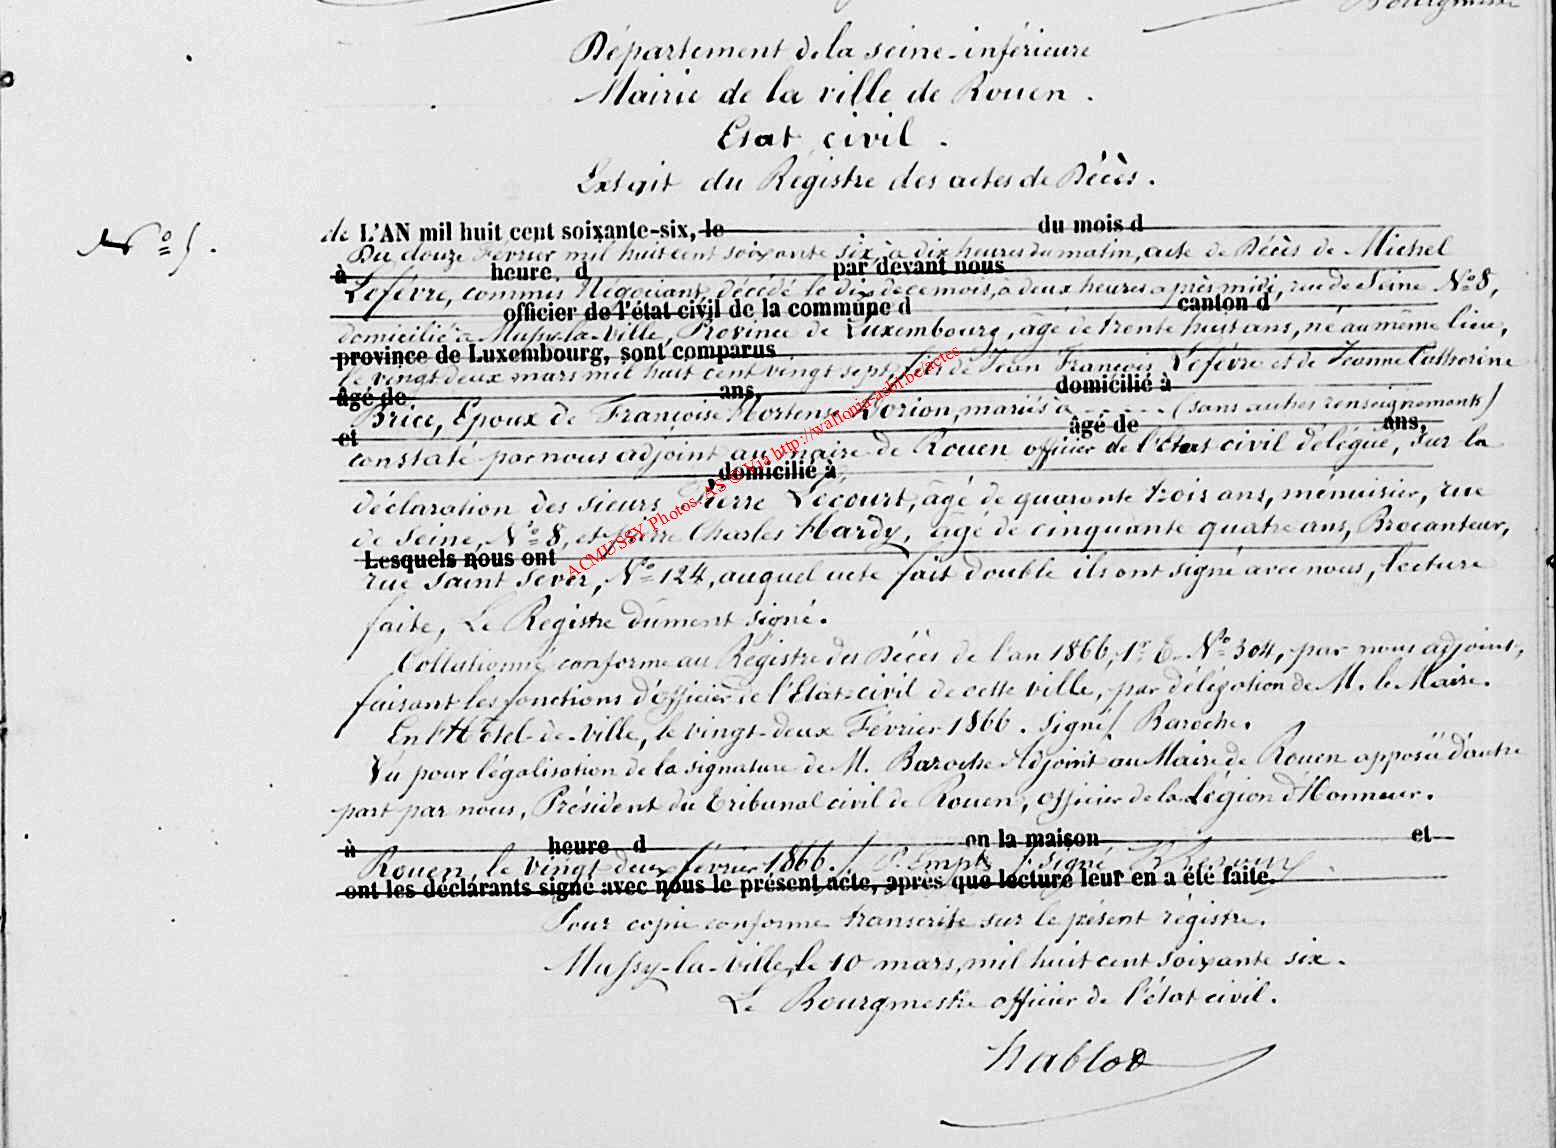 Bourgmestre
Département de la Seine-inférieure
Mairie de la ville de Rouen.
Etat civil.
Extrait du Régistre des actes de Décès.
N° 5.
de L'AN mil huit cent soixante-six, le du mois d
Du douze Février mil huit cent soixante six, à dix heures du matin, acte de Décès de Michel
à heure d par devant nous
Lefèvre, commis Négociant, décédé le dix de ce mois, à deux heures après midi, rue de Seine N° 8,
officier de l'état civil de la commune d canton d
domicilié à Mussy-la-Ville, Province de Luxembourg, âgé de trente huit ans, né au même lieu,
province de Luxembourg, sont comparus
le vingt deux mars mil huit cent vingt sept, fils de Jean François Lefèvre et de Jeanne Catherine
âgé de ans, domicilié à
Brice, Epoux de Françoise Hortense Lorion, mariés à ------ (sans autres renseignements)
et âgé de ans,
constaté par nous adjoint au maire de Rouen officier de l'Etat civil délégué, sur la
domicilié à
déclaration des sieurs Pierre Lecourt, âgé de quarante trois ans, ménuisier, rue
de Seine, N° 8, et Pierre Charles Hardy, âgé de cinquante quatre ans, Brocanteur,
Lesquels nous ont
rue Saint Sever, N° 124, auquel acte fait double ils ont signé avec nous, lecture
faite, Le Régistre dûment signé.
Collationné conforme au Régistre des Décès de l'an 1866, 1r E. N° 304, par nous adjoint,
faisant les fonctions d'officier de l'Etat-civil de cette ville, par délégation de M. le Maire.
En l'Hôtel-de-Ville, le vingt-deux Février 1866. signé/ Baroche.
Vu pour légalisation de la signature de M. Baroche Adjoint au Maire de Rouen apposée d'autre
part par nous, Président du Tribunal civil de Rouen, officier de la Légion d'Honneur.
à heure d en la maison et
Rouen, le vingt deux février 1866. / P. Empt / signé
ont les déclarants signé avec nous le présent acte, après que lecture leur en a été faite.
Pour copie conforme transcrite sur le présent régistre.
Mussy-la-Ville, le 10 mars, mil huit cent soixante six.
Le Bourgmestre officier de l'état civil.
ACMUSSY Photos AS © Via http://wallonia-asbl.be/actes